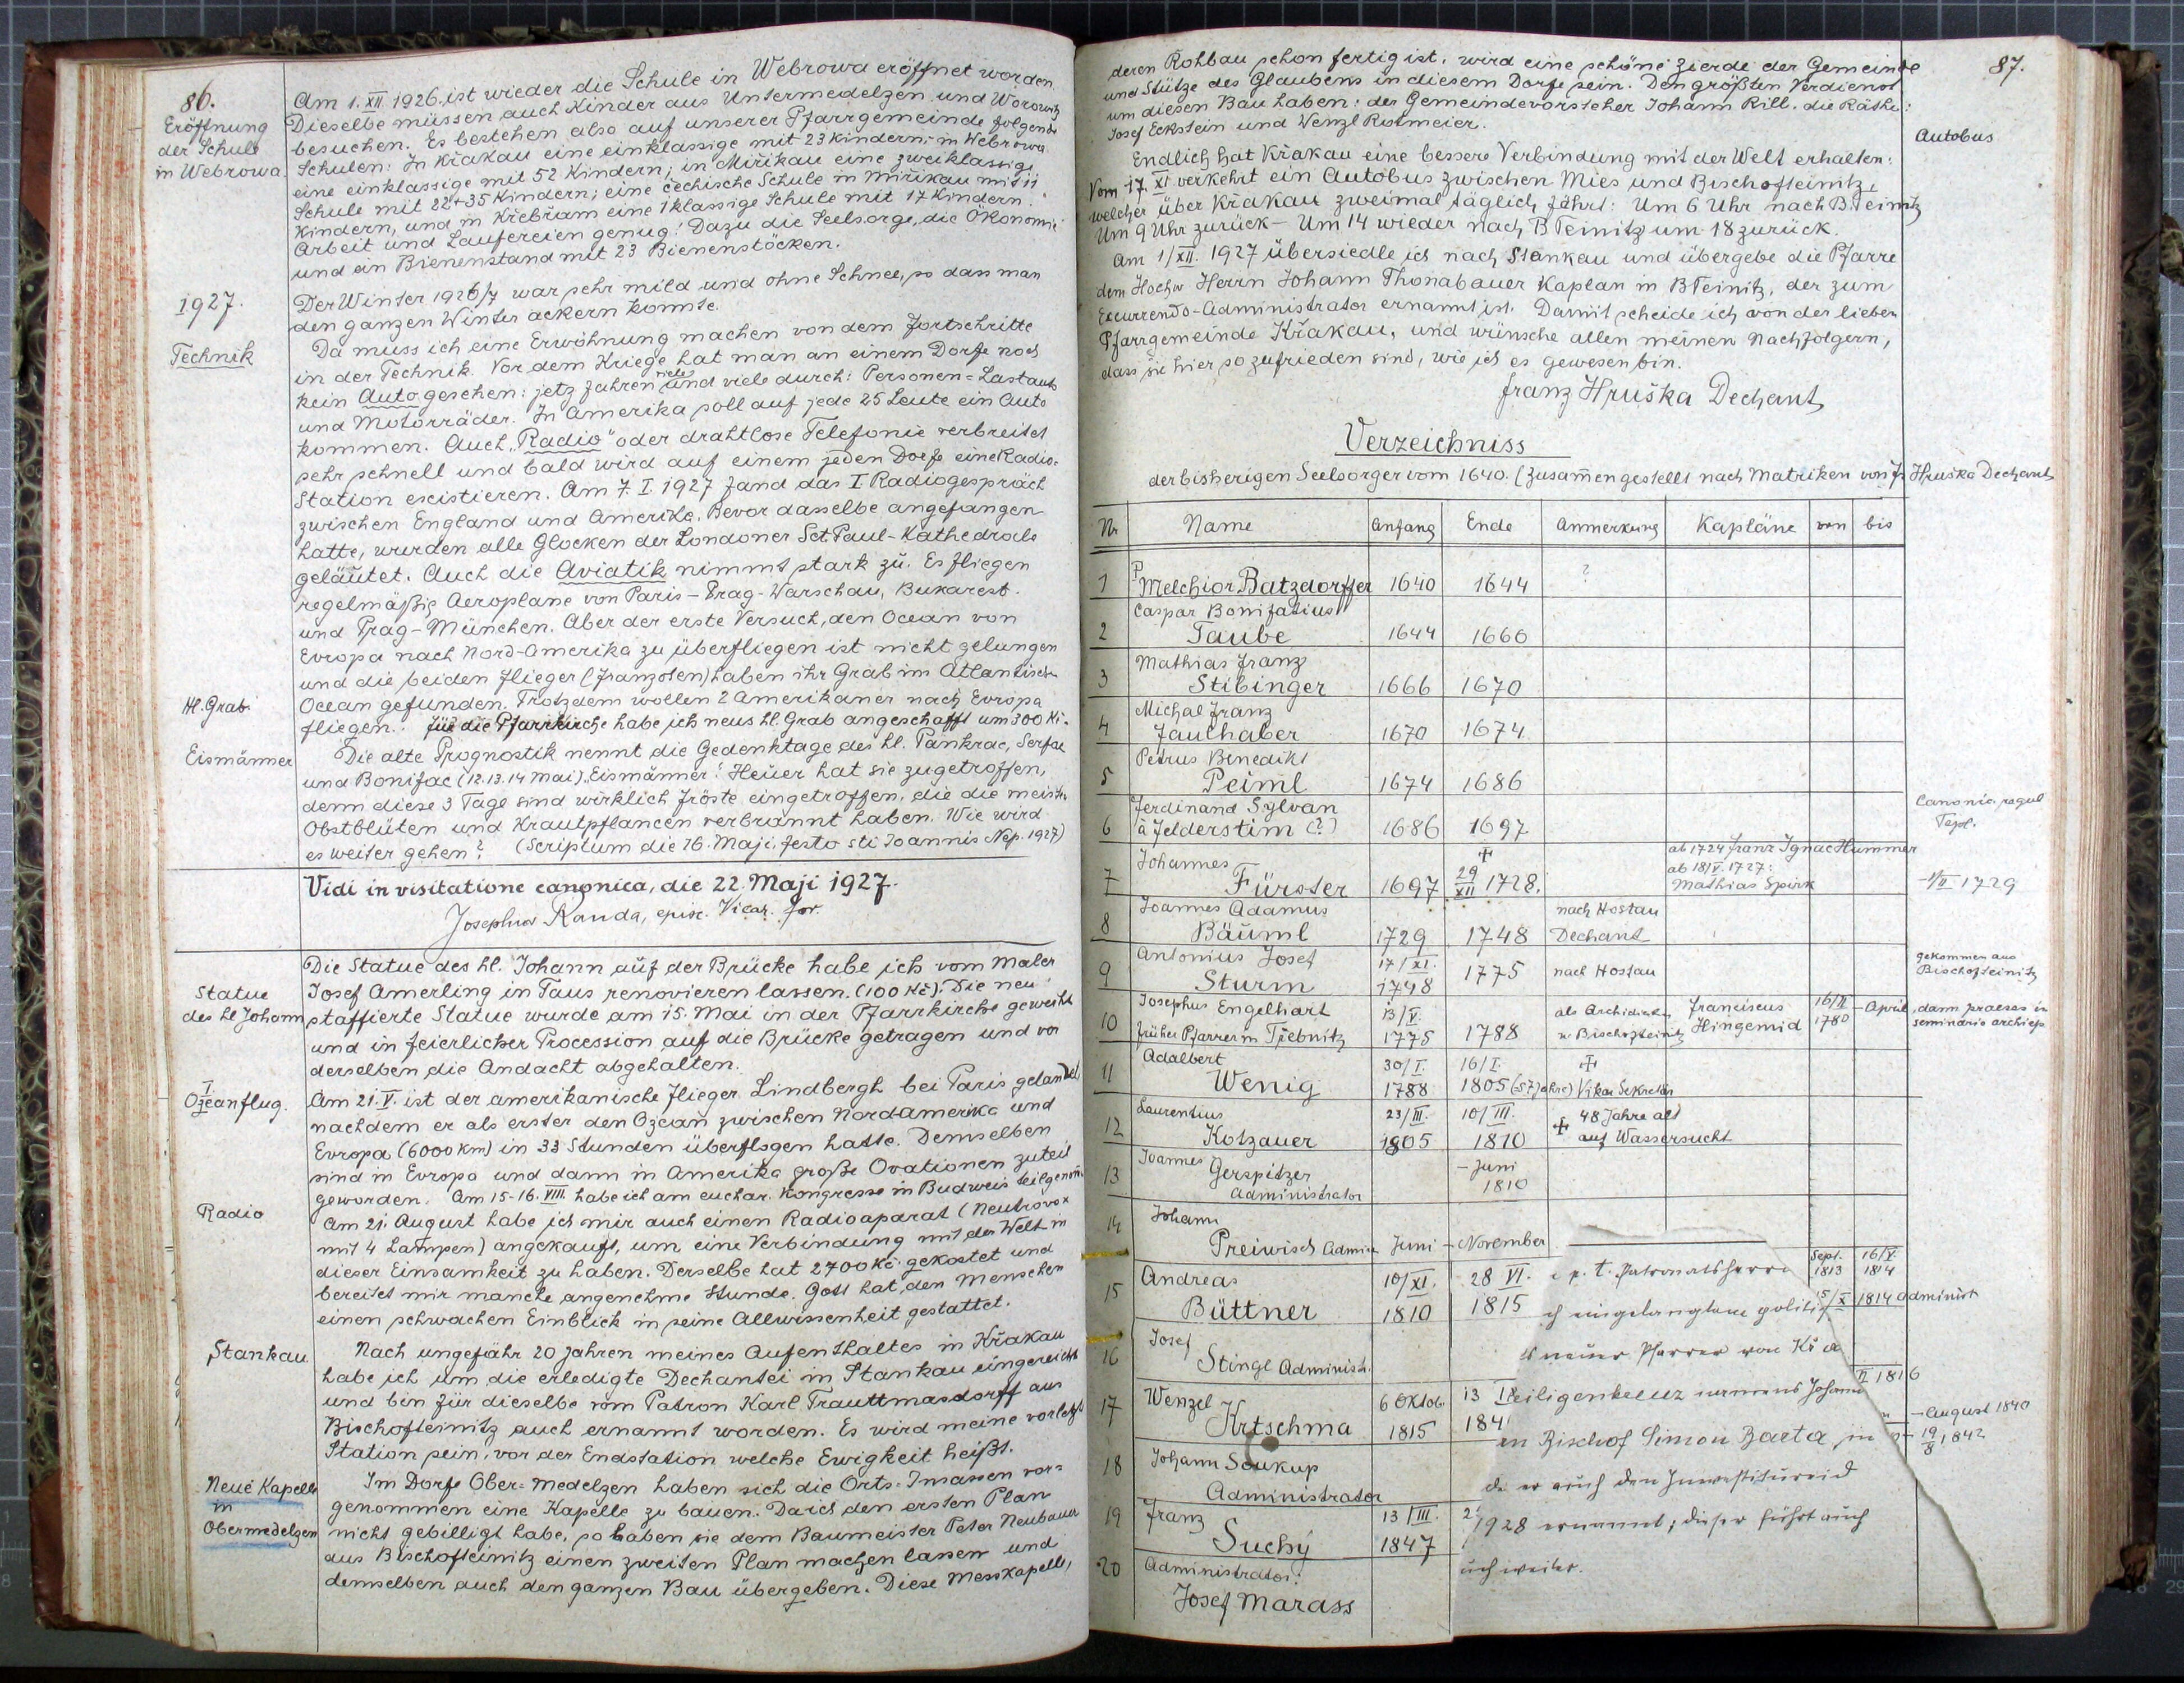 86.
Eröffnung
der Schule
in Webrowa.
Am 1. XII 1926 ist wieder die Schule in Webrowa eröffnet worden
Dieselbe müssen auch Kinder aus Untermedelzen und Worowitz
besuchen. Es bestehen also auf unserer Pfarrgemeinde folgende
Schulen: In Křakau eine einklassige mit 23 Kindern; in Webrowa
eine einklassige mit 52 Kindern; in Miřikau eine zweiklassige
Schule mit 22+35 Kindern; eine čechische Schule in Miřikau mit 11
Kindern, und in Křebřam eine 1klassige Schule mit 17 Kindern.
Arbeit und Laufereien genug! Dazu die Seelsorge, die Ökonomie
und ein Bienenstand mit 23 Bienenstöcken.
1927.
Der Winter 1926/7 war sehr mild und ohne Schnee, so dass man
den ganzen Winter ackern konnte.
Technik
Da muss ich eine Erwöhnung machen von dem Fortschritte
in der Technik. Vor dem Kriege hat man an einem Dorfe noch
kein Auto gesehen: jetz fahren viele und viele durch: Personen-Lastauto
und Motorräder. In Amerika soll auf jede 25 Leute ein Auto
kommen. Auch „Radio" oder drahtlose Telefonie verbreitet
sehr schnell und bald wird auf einem jeden Dorfe eine Radio-
Station existieren. Am 7. I. 1927 fand das I. Radiogespräch
zwischen England und Amerika. Bevor dasselbe angefangen
hatte, wurden alle Glocken der Londoner Sct. Paul-Kathedrale
geläutet. Auch die Aviatik nimmt stark zu. Es fliegen
regelmäßig Aeroplane von Paris-Prag-Warschau, Bukarest.
und Prag-München. Aber der erste Versuch, den Ocean von
Evropa nach Nord-Amerika zu überfliegen ist nicht gelungen
und die beiden Flieger (Franzosen) haben ihr Grab im Atlantischen
Ocean gefunden. Trotzdem wollen 2 Amerikaner nach Evropa
Hl. Grab
fliegen. Für die Pfarrkirche habe ich neus hl. Grab angeschafft um 300 Kč.
Eismänner
Die alte Prognostik nennt die Gedenktage des hl. Pankrac, Servac
und Bonifac (12. 13. 14 Mai) „Eismänner". Heuer hat sie zugetroffen,
denn diese 3 Tage sind wirklich Fröste eingetroffen, die die meisten
Obstblüten und Krautpflancen verbrannt haben. Wie wird
es weiter gehen? (Scriptum die 16. Maji, festo sti Joannis Nep. 1927)
Vidi in visitatione canonica, die 22. Maji 1927.
Josephus Randa, episc. Vicar. for.
Statue
des hl Johann
Die Statue des hl. Johann auf der Brücke habe ich vom Maler
Josef Amerling in Taus renovieren lassen. (100 Kč). Die neu
staffierte Statue wurde am 15. Mai in der Pfarrkirche geweiht
und in feierlicher Procession auf die Brücke getragen und vor
derselben die Andacht abgehalten.
I.
Ozeanflug.
Am 21. V. ist der amerikanische Flieger Lindbergh bei Paris gelandet
nachdem er als erster den Ozean zwischen Nordamerika und
Evropa (6000 Km) in 33 Stunden überflogen hatte. Demselben
sind in Evropa und dann in Amerika große Ovationen zuteil
geworden. Am 15-16. VIII. habe ich am euchar. Kongresse in Budweis teilgenom.
Radio
Am 21. August habe ich mir auch einen Radioaparat (Neutrovox
mit 4 Lampen) angekauft, um eine Verbindung mit der Welt in
dieser Einsamkeit zu haben. Derselbe hat 2700 Kč gekostet und
bereitet mir manche angenehme Stunde. Gott hat den Menschen
einen schwachen Einblick in seine Allwissenheit gestattet.
Stankau
Nach ungefähr 20 Jahren meines Aufenthaltes in Křakau
habe ich um die erledigte Dechantei in Stankau eingereicht
und bin für dieselbe vom Patron Karl Trauttmansdorff aus
Bischofteinitz auch ernannt worden. Es wird meine vorletzt
Station sein, vor der Endstation welche Ewigkeit heißt.
Neue Kapelle
in
Obermedelzen
Im Dorfe Ober-Medelzen haben sich die Orts-Insassen vor-
genommen eine Kapelle zu bauen. Da ich den ersten Plan
nicht gebilligt habe, so haben sie dem Baumeister Peter Neubauer
aus Bischofteinitz einen zweiten Plan machen lassen und
demselben auch den ganzen Bau übergeben. Diese Messkapelle,
87.
deren Rohbau schon fertig ist, wird eine schöne Zierde der Gemeinde
und Stütze des Glaubens in diesem Dorfe sein. Den größten Verdienst
um diesen Bau haben: der Gemeindevorsteher Johann Rill, die Räthe:
Josef Eckstein und Wenzl Rotmeier.
Autobus
Endlich hat Křakau eine bessere Verbindung mit der Welt erhalten:
Vom 17. XI verkehrt ein Autobus zwischen Mies und Bischofteinitz,
welcher über Křakau zweimal täglich fährt: Um 6 Uhr nach B.Teinitz
Um 9 Uhr zurück - Um 14 wieder nach B Teinitz um 18 zurück.
Am 1/XII. 1927 übersiedle ich nach Stankau und übergebe die Pfarre
dem Hochw Herrn Johann Thonabauer Kaplan in BTeinitz, der zum
Excurrendo-Administrator ernannt ist. Damit scheide ich von der lieben
Pfarrgemeinde Křakau, und wünsche allen meinen Nachfolgern,
dass sie hier so zufrieden sind, wie ich es gewesen bin.
Franz Hruška Dechant
Verzeichniss
der bisherigen Seelsorger vom 1640. (Zusam̄engestellt nach Matriken von Fr Hruška Dechant
Nr Name Anfang Ende Anmerkung Kapläne von bis
1 P. Melchior Batzdorffer 1640 1644 ?
Caspar Bonifatius
2 Taube 1644 1660
Mathias Franz
3 Stibinger 1666 1670
Michal Franz
4 Jauchaber 1670 1674
Petrus Benedikt
5 Peiml 1674 1686
Ferdinand Sylvan
6 à Felderstim (?) 1686 1697
Canonic. regul
Tepl.
Johannes
7 Fürster 1697 + 29/XII 1728.
ab 1724 Franz Ignac Hummer
ab 18/V. 1727:
Mathias Spirk
-1/II 1729
Joannes Adamus
8 Bäuml 1729 1748 nach Hostau
Dechant
Antonius Josef
9 Sturm 17/XI. 1748 1775 nach Hostau
gekommen aus
Bischofteinitz
Josephus Engelhart
10 früher Pfarrer in Třebnitz 13/V. 1775 1788
als Archidiakon
n. Bischofteinitz
Franciscus
Hingemid
16/II 1780 - April, dann praeses in
seminario archiep
Adalbert
11 Wenig 30/I. 1788 16/I. 1805 (57 Jahre) + Vikar Sekretär
Laurentius
12 Kotzauer 23/III. 1805 10/III. 1810 + 48 Jahre alt
auf Wassersucht
Joannes
13 Gerspitzer
Administrator
- Juni
1810
Johann
14 Preiwisch Admin Juni - November
Andreas
15 Büttner 10/XI. 1810 28 VI. 1815
p. t. Patronatsherrn
Sept. 1813 16/V. 1814
5/X 1814 Administ
Josef
16 Stingl Administ.
neuer Pfarrer von Kř
II 1816
Wenzel
17 Krtschma 6 Oktob. 1815 13 184
eiligenkreuz namens Johann
- August 1840
Bischof Simon Barta in
19/8 1842
18 Johann Soukup
Administrator
er auch den Investitureid
Franz
19 Suchý 13/III. 1847 2
1928 ernannt; dieser führt auch
20 Administrator:
auch weiter.
Josef Marass